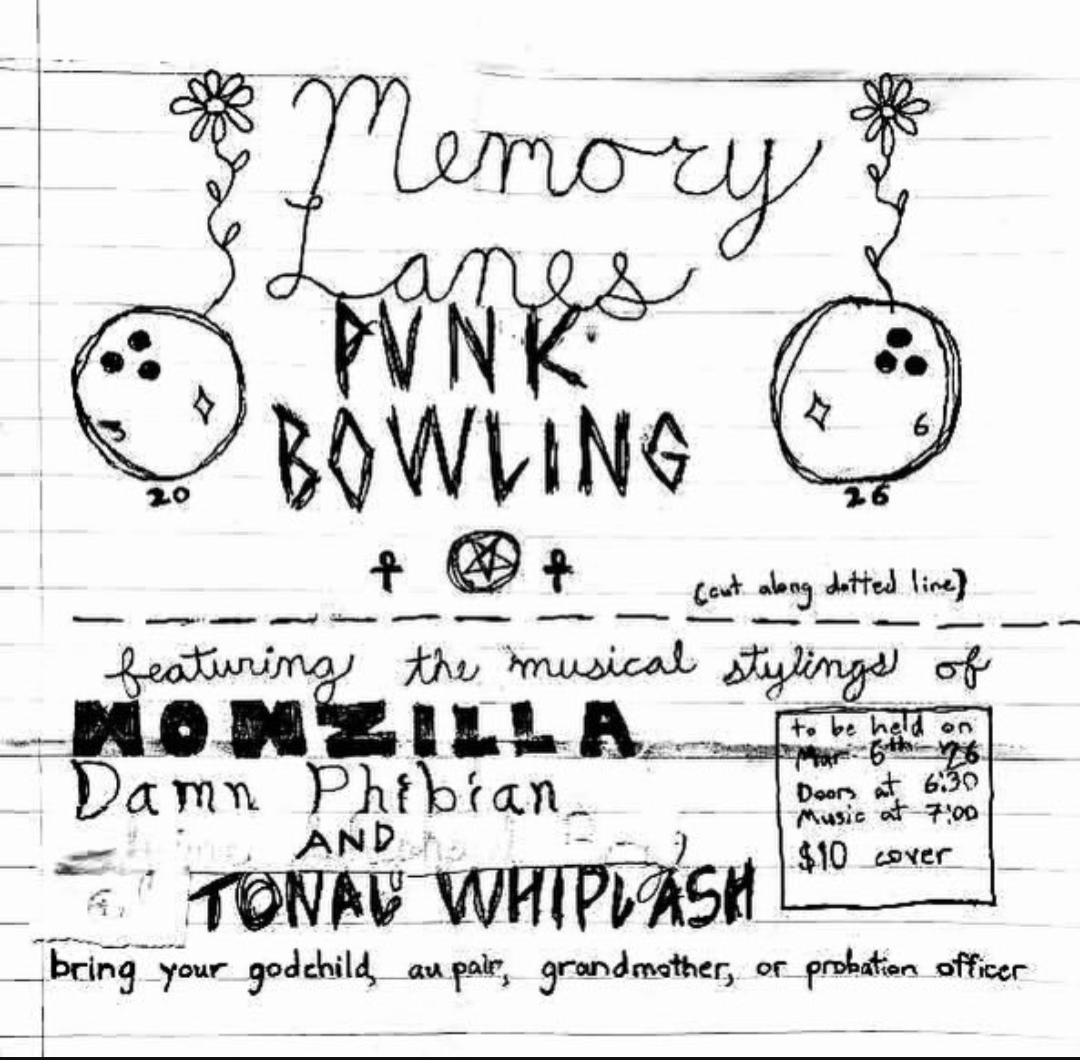 Memory
Lanes
PUNK
BOWLING
3
6
20
26
(cut along dotted line)
featuring the musical stylings of
MOMZILLA
Damn Phibian
AND
TONAL WHIPLASH
to be held on
Mar 6th '26
Doors at 6:30
Music at 7:00
$10 cover
bring your godchild, au pair, grandmother, or probation officer